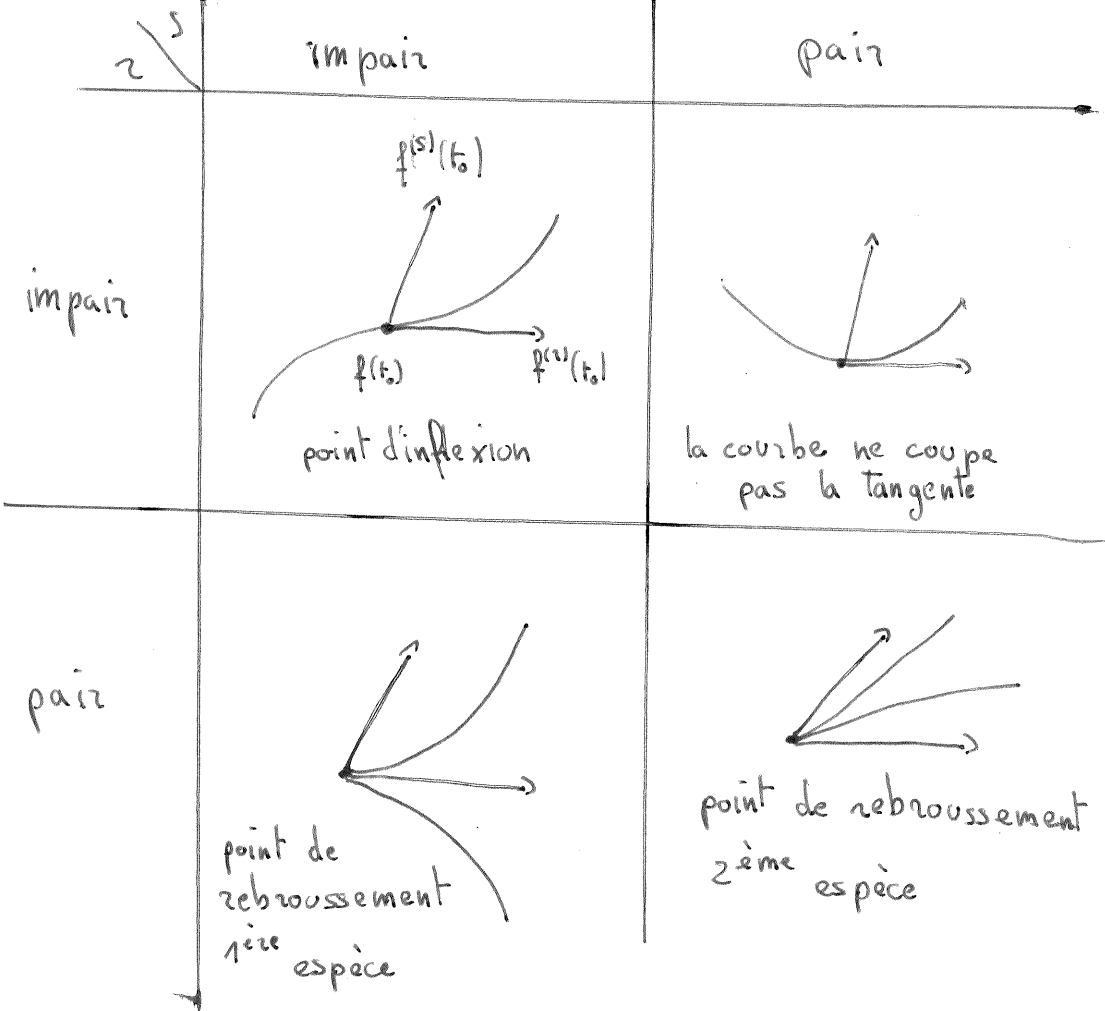 s
r
impair
pair
impair
f^(s)(t₀)
f(t₀)
f^(r)(t₀)
point d'inflexion
la courbe ne coupe
pas la tangente
pair
point de
rebroussement
1ère
espèce
point de rebroussement
2ème
espèce